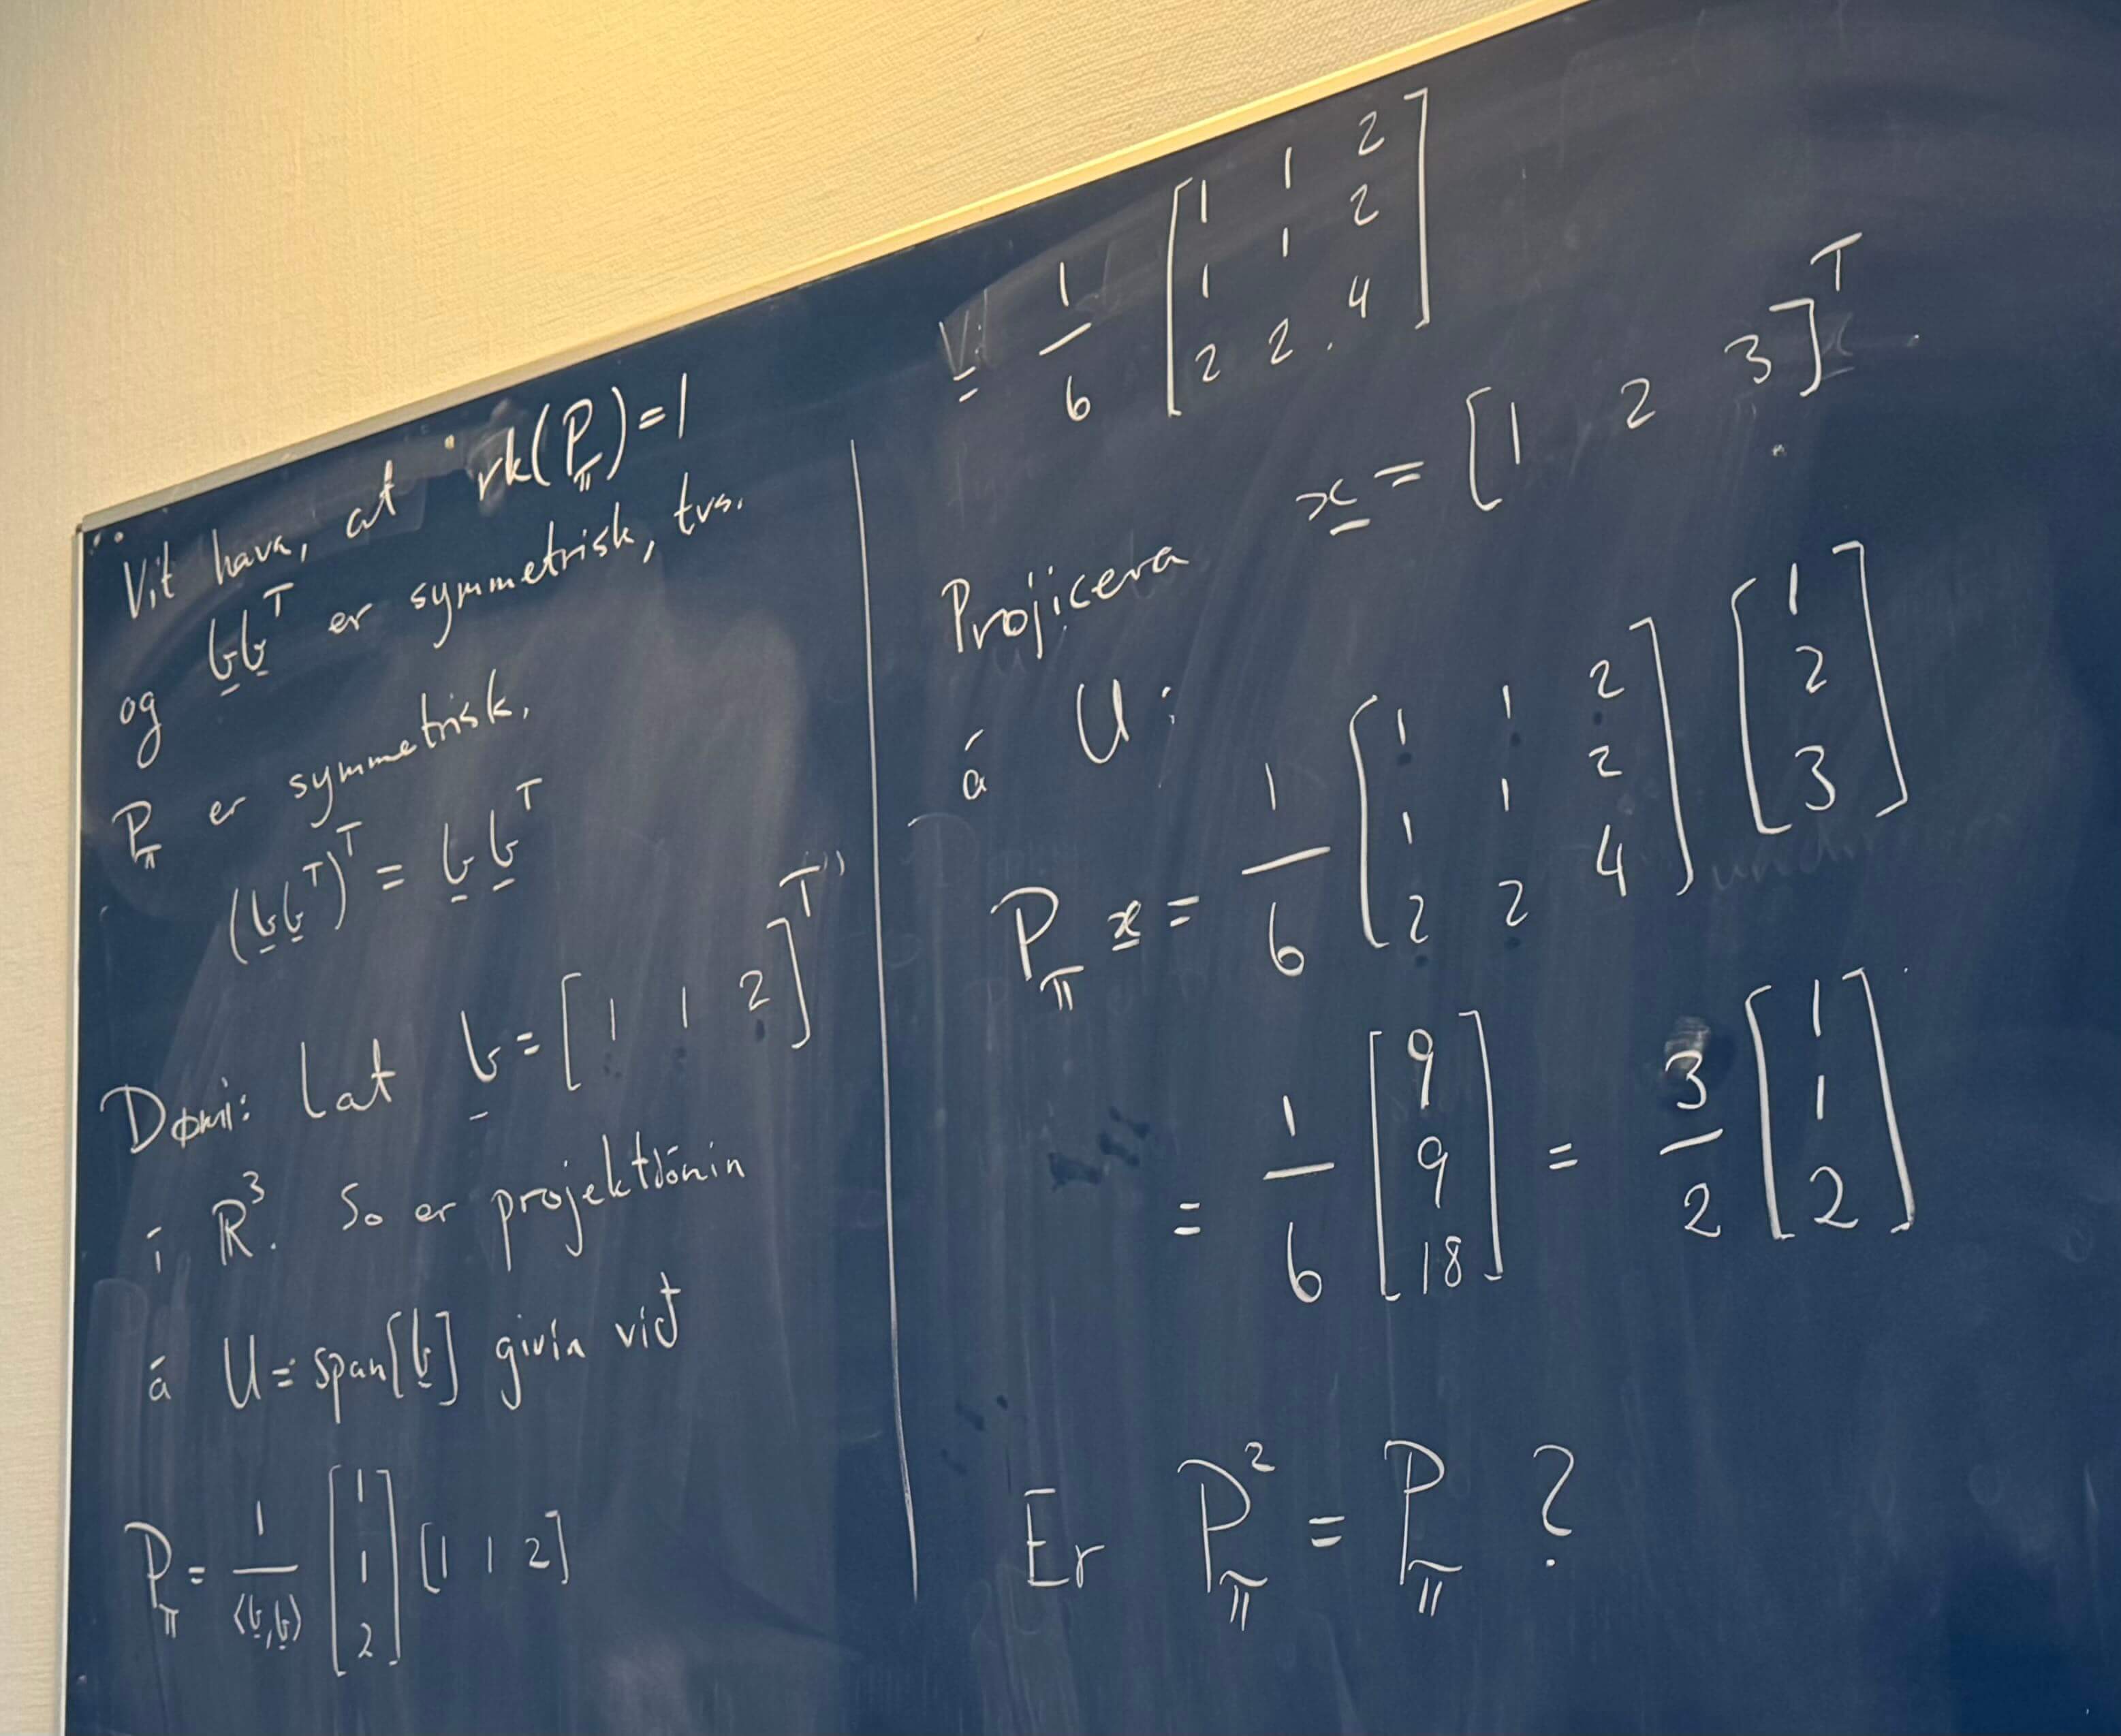 Vit hava, at rk(P_π)=1
og b̲b̲^T er symmetrisk, tvs.
P_π er symmetrisk.
(b̲b̲^T)^T = b̲b̲^T
Dømi: Lat b̲ = [1 1 2]^T
í ℝ^3. So er projektiónin
á U = span[b̲] givin við
P_π = 1/⟨b̲,b̲⟩ [1; 1; 2] [1 1 2]
= 1/6 [1 1 2; 1 1 2; 2 2 4]
Projicera x̲ = [1 2 3]^T
á U:
P_π x̲ = 1/6 [1 1 2; 1 1 2; 2 2 4] [1; 2; 3]
= 1/6 [9; 9; 18] = 3/2 [1; 1; 2]
Er P_π^2 = P_π ?